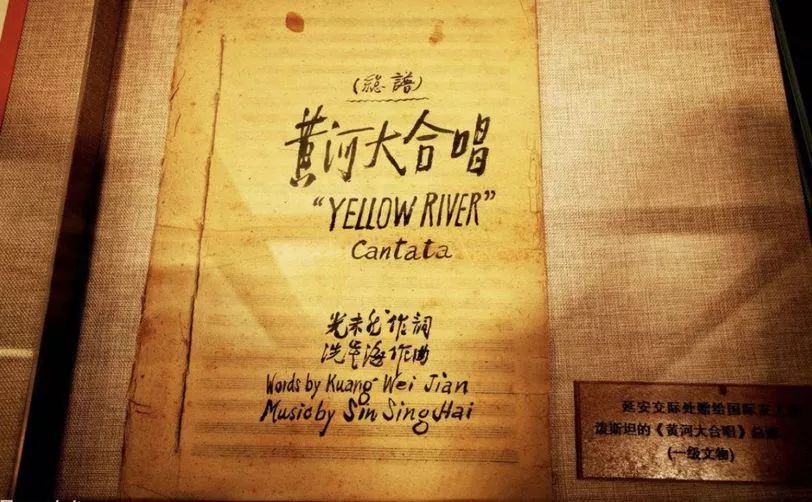 (總譜)
黄河大合唱
"YELLOW RIVER"
Cantata
光未然作詞
冼星海作曲
Words by Kuang Wei Jian
Music by Sin Sing Hai
延安交际处赠给国际友人
泼斯坦的《黄河大合唱》总谱
(一级文物)